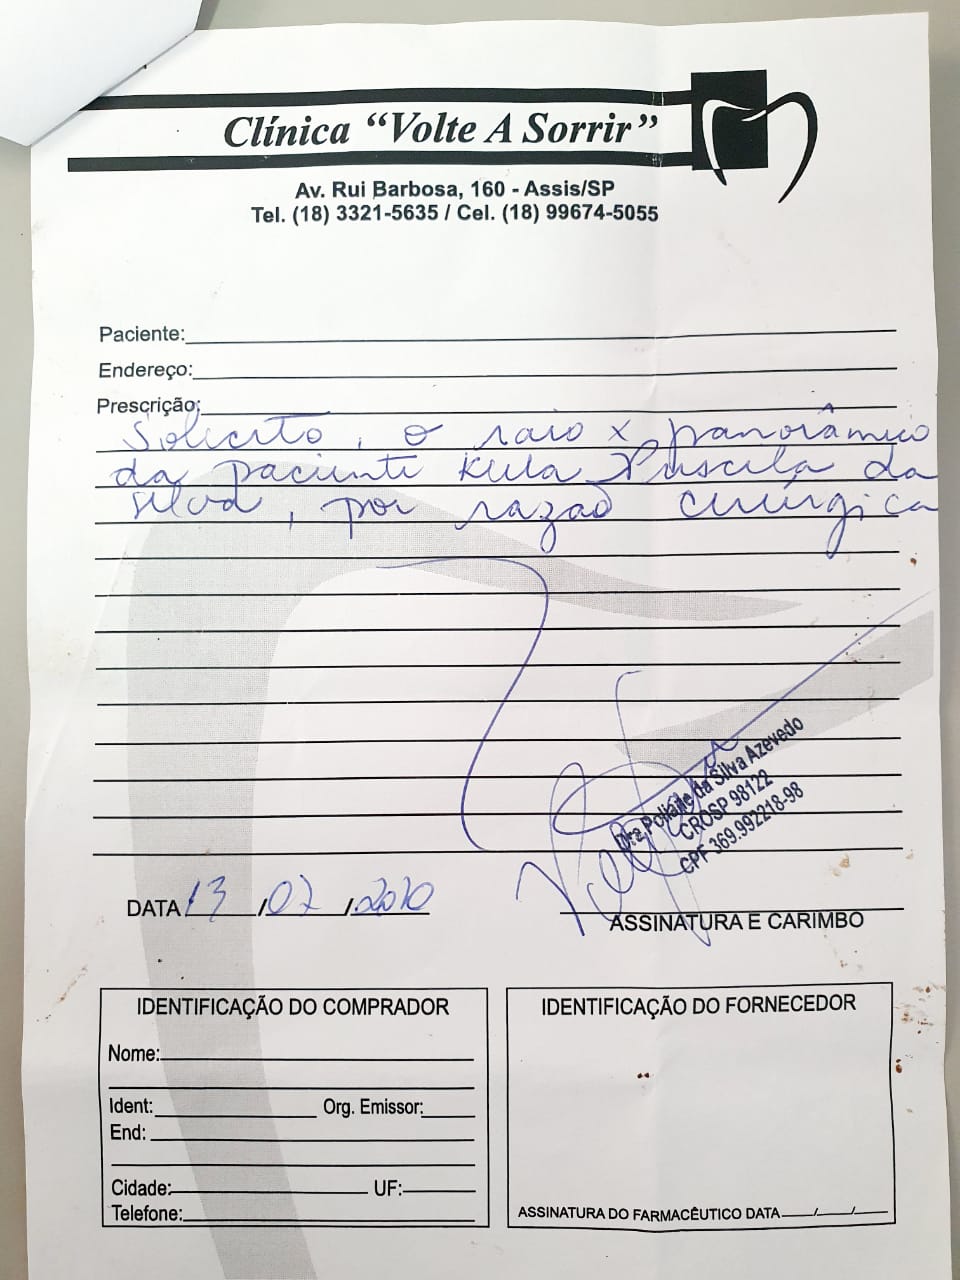 Clínica “Volte A Sorrir”
Av. Rui Barbosa, 160 - Assis/SP
Tel. (18) 3321-5635 / Cel. (18) 99674-5055
Paciente:
Endereço:
Prescrição:
Solicito, o raio x panorâmico
da paciente Kula Priscila da
Silva, por razão cirúrgica
Dra Poliane da Silva Azevedo
CROSP 98122
CPF 369.992218-98
DATA 13/07/2020
ASSINATURA E CARIMBO
IDENTIFICAÇÃO DO COMPRADOR
Nome:
Ident: Org. Emissor:
End:
Cidade: UF:
Telefone:
IDENTIFICAÇÃO DO FORNECEDOR
ASSINATURA DO FARMACÊUTICO DATA / /